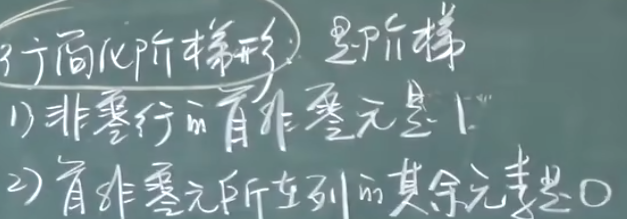 行简化阶梯形: 是阶梯
1) 非零行的首非零元是1.
2) 首非零元所在列的其余元素是0